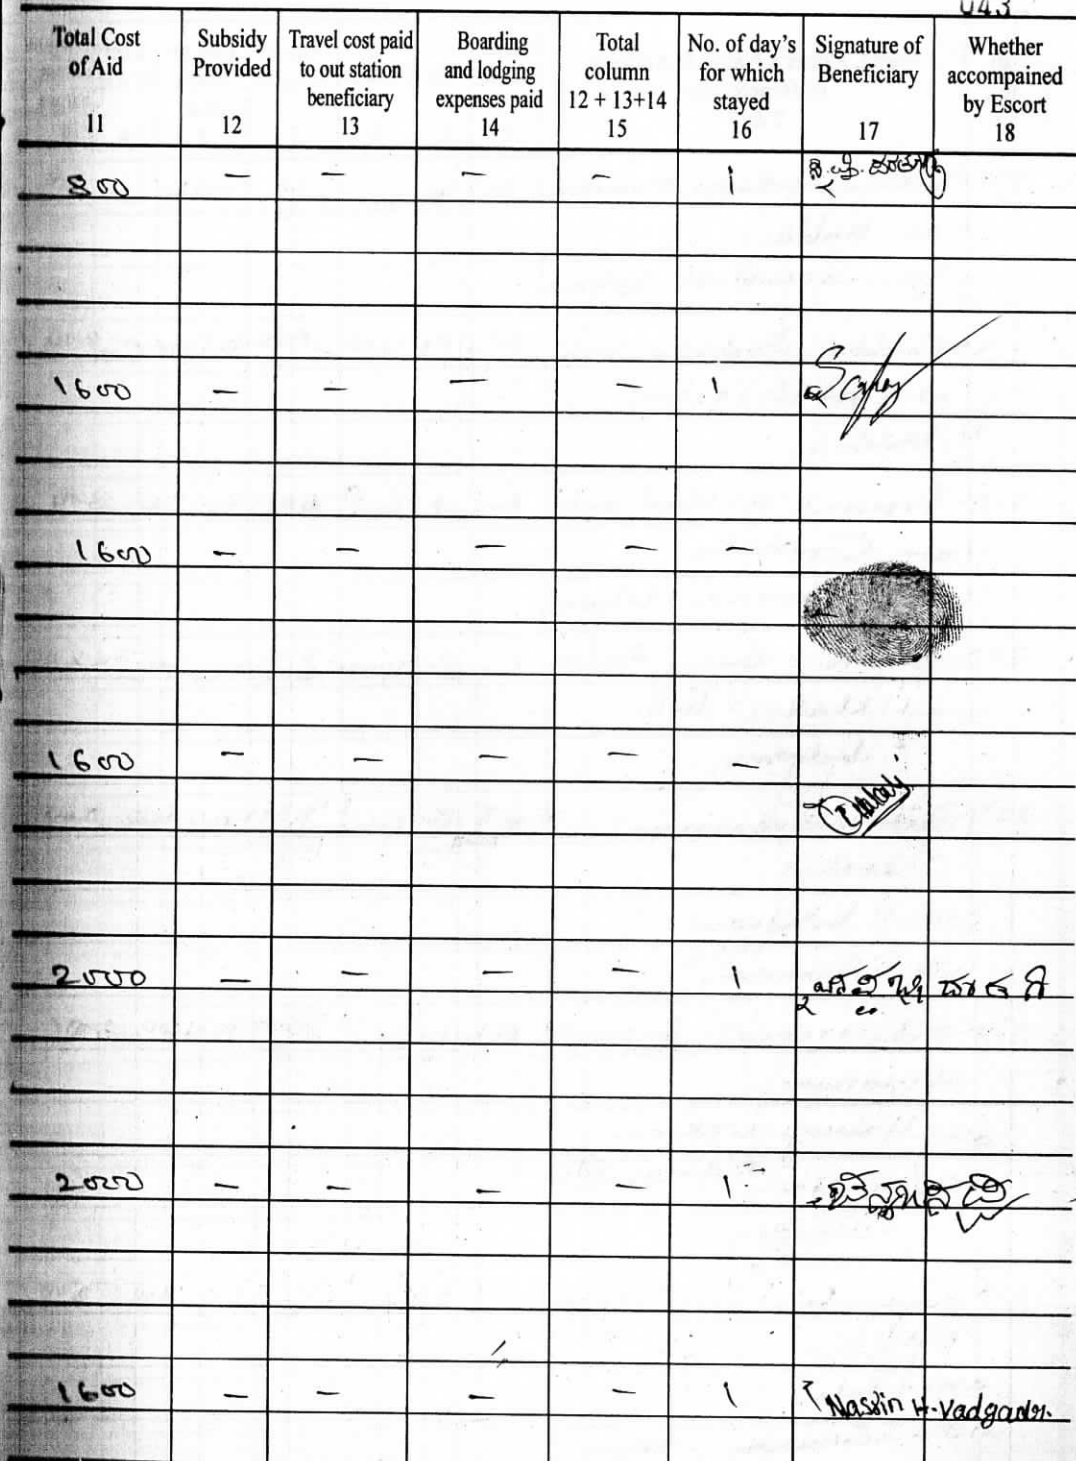 043
Total Cost of Aid 11
Subsidy Provided 12
Travel cost paid to out station beneficiary 13
Boarding and lodging expenses paid 14
Total column 12 + 13+14 15
No. of day's for which stayed 16
Signature of Beneficiary 17
Whether accompained by Escort 18
800 — — — — 1
1600 — — — — 1
1600 — — — — —
1600 — — — — —
2000 — — — — 1
2000 — — — — 1
1600 — — — — 1 Nassin H. Vadgadr.